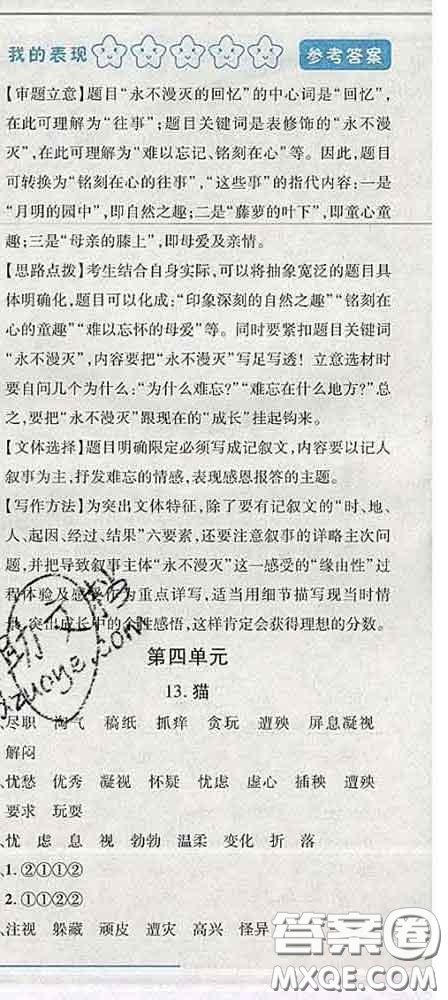 我的表现 参考答案
【审题立意】题目“永不漫灭的回忆”的中心词是“回忆”，
在此可理解为“往事”；题目关键词是表修饰的“永不漫
灭”，在此可理解为“难以忘记、铭刻在心”等。因此，题目
可转换为“铭刻在心的往事”，“这些事”的指代内容：一是
“月明的园中”，即自然之趣；二是“藤萝的叶下”，即童心童
趣；三是“母亲的膝上”，即母爱及亲情。
【思路点拨】考生结合自身实际，可以将抽象宽泛的题目具
体明确化，题目可以化成：“印象深刻的自然之趣”“铭刻在
心的童趣”“难以忘怀的母爱”等。同时要紧扣题目关键词
“永不漫灭”，内容要把“永不漫灭”写足写透！立意选材时
要自问几个为什么：“为什么难忘？”“难忘在什么地方？”总
之，要把“永不漫灭”跟现在的“成长”挂起钩来。
【文体选择】题目明确限定必须写成记叙文，内容要以记人
叙事为主，抒发难忘的情感，表现感恩报答的主题。
【写作方法】为突出文体特征，除了要有记叙文的“时、地、
人、起因、经过、结果”六要素，还要注意叙事的详略主次问
题，并把导致叙事主体“永不漫灭”这一感受的“缘由性”过
程体验及感受作为重点详写，适当用细节描写现当时情
景，突出成长中的个性感悟，这样肯定会获得理想的分数。
第四单元
13.猫
、尽职 淘气 稿纸 抓痒 贪玩 遭殃 屏息凝视
解闷
、忧愁 优秀 凝视 怀疑 忧虑 虚心 插秧 遭殃
要求 玩耍
、忧 虑 息 视 勃勃 温柔 变化 折 落
、1.②①①②
2.①①②②
、注视 躲藏 顽皮 遭灾 高兴 怪异
答案圈
MXQE.COM